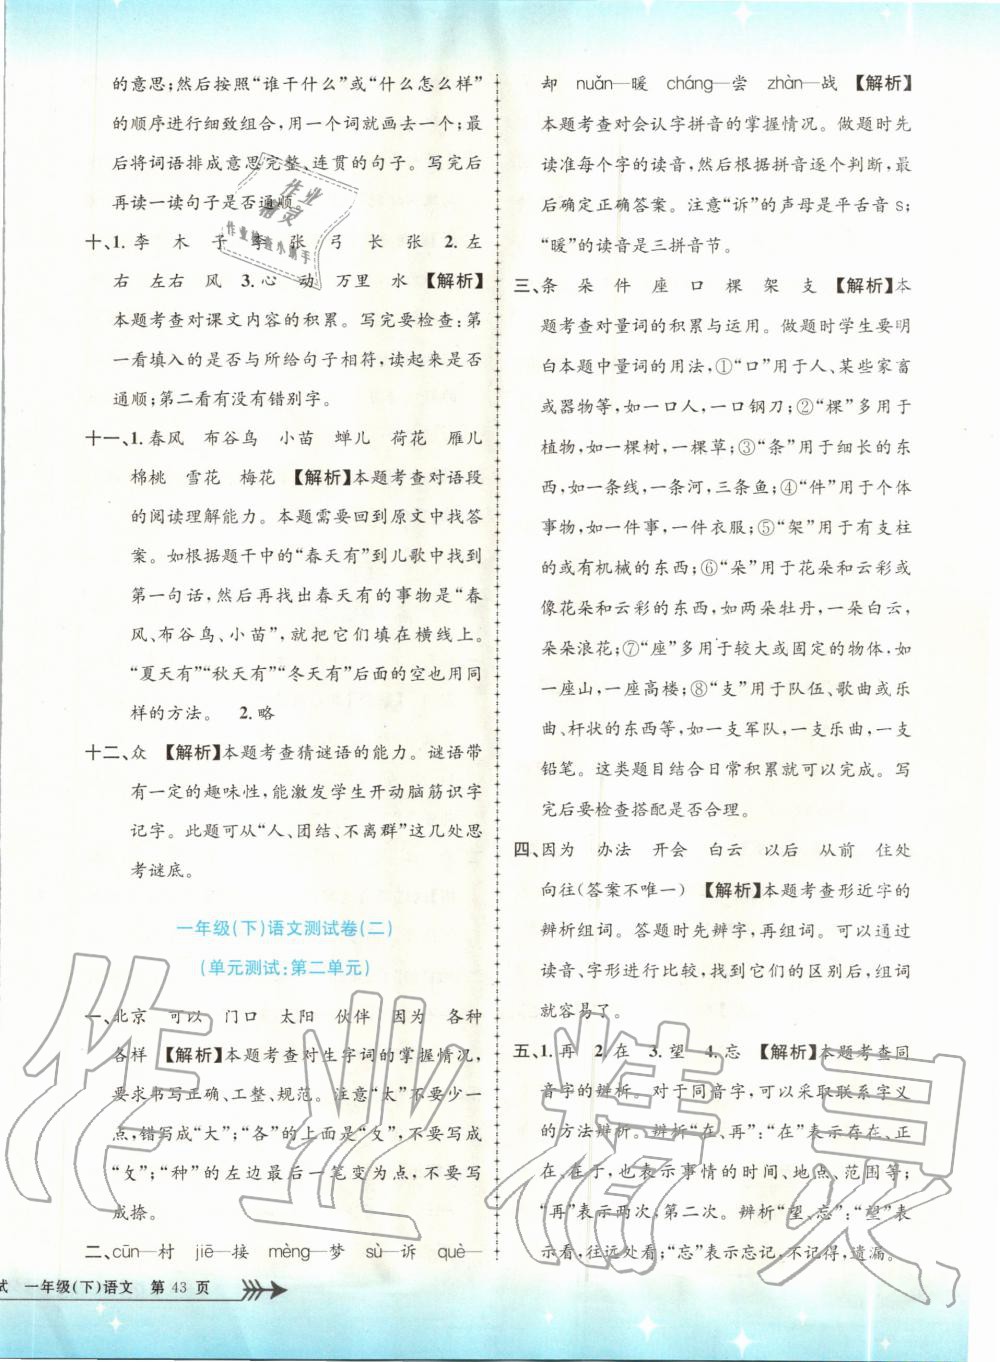 的意思;然后按照“谁干什么”或“什么怎么样”
的顺序进行细致组合,用一个词就画去一个。最
后将词语排成意思完整、连贯的句子。写完后
再读一读句子是否通顺。
十、1.李 木 子 李 张 弓 长 张 2.左
右 左右 风 3.心 动 万里 水 【解析】
本题考查对课文内容的积累。写完要检查:第
一看填入的是否与所给句子相符,读起来是否
通顺;第二看有没有错别字。
十一、1.春风 布谷鸟 小苗 蝉儿 荷花 雁儿
棉桃 雪花 梅花 【解析】本题考查对语段
的阅读理解能力。本题需要回到原文中找答
案。如根据题干中的“春天有”到儿歌中找到
第一句话,然后再找出春天有的事物是“春
风、布谷鸟、小苗”,就把它们填在横线上。
“夏天有”“秋天有”“冬天有”后面的空也用同
样的方法。 2.略
十二、众 【解析】本题考查猜谜语的能力。谜语带
有一定的趣味性,能激发学生开动脑筋识字
记字。此题可从“人、团结、不离群”这几处思
考谜底。
一年级(下)语文测试卷(二)
(单元测试:第二单元)
一、北京 可以 门口 太阳 伙伴 因为 各种
各样 【解析】本题考查对生字词的掌握情况,
要求书写正确、工整、规范。注意“太”不要少一
点,错写成“大”;“各”的上面是“夂”,不要写成
“攵”;“种”的左边最后一笔变为点,不要写
成捺。
二、cūn—村 jiē—接 mèng—梦 sù—诉 què—
却 nuǎn—暖 cháng—尝 zhàn—战 【解析】
本题考查对会认字拼音的掌握情况。做题时先
读准每个字的读音,然后根据拼音逐个判断,最
后确定正确答案。注意“诉”的声母是平舌音s;
“暖”的读音是三拼音节。
三、条 朵 件 座 口 棵 架 支 【解析】本
题考查对量词的积累与运用。做题时学生要明
白本题中量词的用法,①“口”用于人、某些家畜
或器物等,如一口人,一口钢刀;②“棵”多用于
植物,如一棵树,一棵草;③“条”用于细长的东
西,如一条线,一条河,三条鱼;④“件”用于个体
事物,如一件事,一件衣服;⑤“架”用于有支柱
的或有机械的东西;⑥“朵”用于花朵和云彩或
像花朵和云彩的东西,如两朵牡丹,一朵白云,
朵朵浪花;⑦“座”多用于较大或固定的物体,如
一座山,一座高楼;⑧“支”用于队伍、歌曲或乐
曲、杆状的东西等,如一支军队,一支乐曲,一支
铅笔。这类题目结合日常积累就可以完成。写
完后要检查搭配是否合理。
四、因为 办法 开会 白云 以后 从前 住处
向往(答案不唯一) 【解析】本题考查形近字的
辨析组词。答题时先辨字,再组词。可以通过
读音、字形进行比较,找到它们的区别后,组词
就容易了。
五、1.再 2.在 3.望 4.忘 【解析】本题考查同
音字的辨析。对于同音字,可以采取联系字义
的方法辨析。辨析“在、再”:“在”表示存在、正
在、在于,也表示事情的时间、地点、范围等;
“再”表示两次,第二次。辨析“望、忘”:“望”表
示看,往远处看;“忘”表示忘记,不记得,遗漏。
试 一年级(下)语文 第 43 页
作业精灵
作业精灵
作业检查小帮手